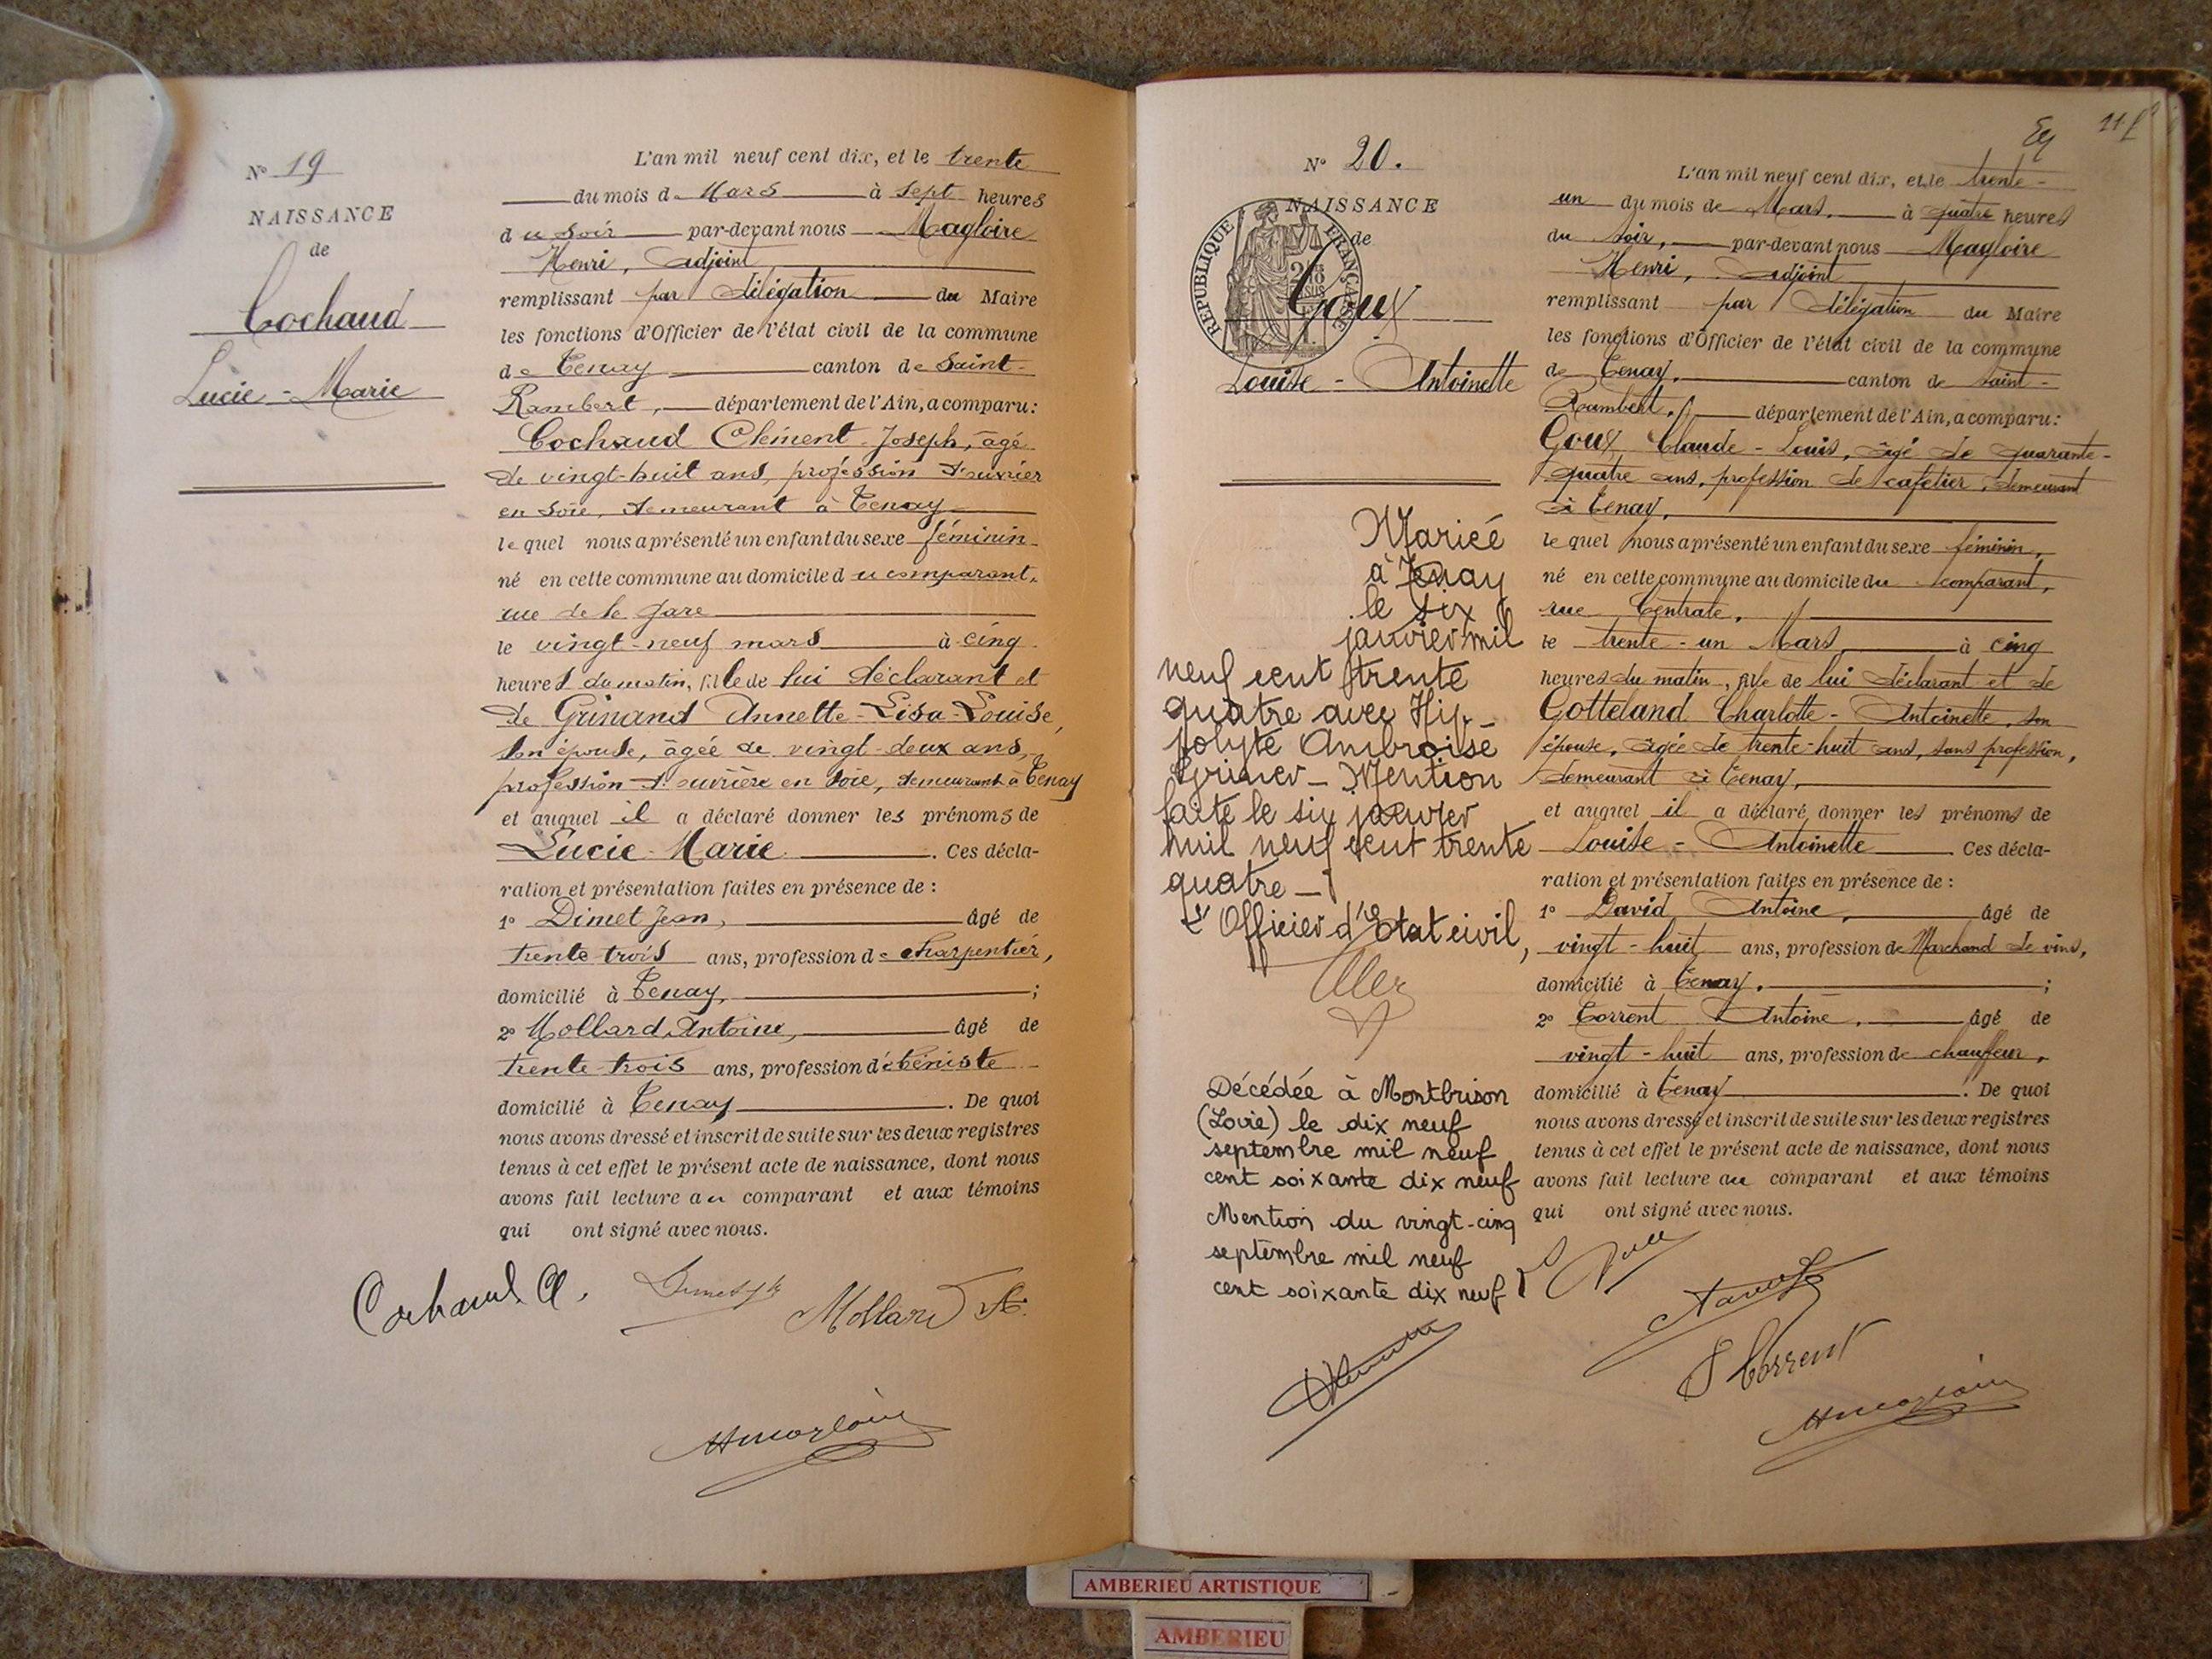 N° 19
NAISSANCE
de
Cochaud
Lucie - Marie
L'an mil neuf cent dix, et le trente
du mois de Mars à sept heures
du soir par-devant nous Magloire
Henri, adjoint
remplissant par délégation du Maire
les fonctions d'Officier de l'état civil de la commune
de Tenay canton de Saint-
Rambert, département de l'Ain, a comparu :
Cochaud Clément-Joseph, âgé
de vingt-huit ans, profession d'ouvrier
en soie, demeurant à Tenay
lequel nous a présenté un enfant du sexe féminin
né en cette commune au domicile du comparant,
rue de la gare
le vingt-neuf mars à cinq
heures du matin, fille de lui déclarant et
de Guinand Annette-Lisa-Louise,
son épouse, âgée de vingt-deux ans,
profession d'ouvrière en soie, demeurant à Tenay
et auquel il a déclaré donner les prénoms de
Lucie-Marie. Ces décla-
ration et présentation faites en présence de :
1° Dimet Jean, âgé de
trente trois ans, profession de charpentier,
domicilié à Tenay, ;
2° Mollard Antoine, âgé de
trente-trois ans, profession d'ébéniste
domicilié à Tenay. De quoi
nous avons dressé et inscrit de suite sur les deux registres
tenus à cet effet le présent acte de naissance, dont nous
avons fait lecture au comparant et aux témoins
qui ont signé avec nous.
Cochaud Cl.
Mollard A.
HMagloire
11
N° 20.
NAISSANCE
de
REPUBLIQUE FRANÇAISE
Goux
Louise - Antoinette
Mariée
à Tenay
le six
janvier mil
neuf cent trente
quatre avec Hip-
polyte Ambroise
Mention
faite le six janvier
mil neuf cent trente
quatre -
L'Officier d'Etat civil,
Décédée à Montbrison
(Loire) le dix neuf
septembre mil neuf
cent soixante dix neuf
Mention du vingt-cinq
septembre mil neuf
cent soixante dix neuf
L'an mil neuf cent dix, et le trente-
un du mois de Mars, à quatre heures
du soir, par-devant nous Magloire
Henri, adjoint
remplissant par délégation du Maire
les fonctions d'Officier de l'état civil de la commune
de Tenay, canton de Saint-
Rambert, département de l'Ain, a comparu :
Goux Claude-Louis, âgé de quarante-
quatre ans, profession de cafetier, demeurant
à Tenay,
lequel nous a présenté un enfant du sexe féminin,
né en cette commune au domicile du comparant,
rue Centrale,
le trente-un Mars, à cinq
heures du matin, fille de lui déclarant et de
Gotteland Charlotte-Antoinette, son
épouse, âgée de trente-huit ans, sans profession,
demeurant à Tenay,
et auquel il a déclaré donner les prénoms de
Louise - Antoinette Ces décla-
ration et présentation faites en présence de :
1° David Antoine, âgé de
vingt-huit ans, profession de Marchand de vins,
domicilié à Tenay, ;
2° Torrent Antoine, âgé de
vingt-huit ans, profession de chauffeur,
domicilié à Tenay. De quoi
nous avons dressé et inscrit de suite sur les deux registres
tenus à cet effet le présent acte de naissance, dont nous
avons fait lecture au comparant et aux témoins
qui ont signé avec nous.
Torrent
HMagloire
AMBERIEU ARTISTIQUE
AMBERIEU